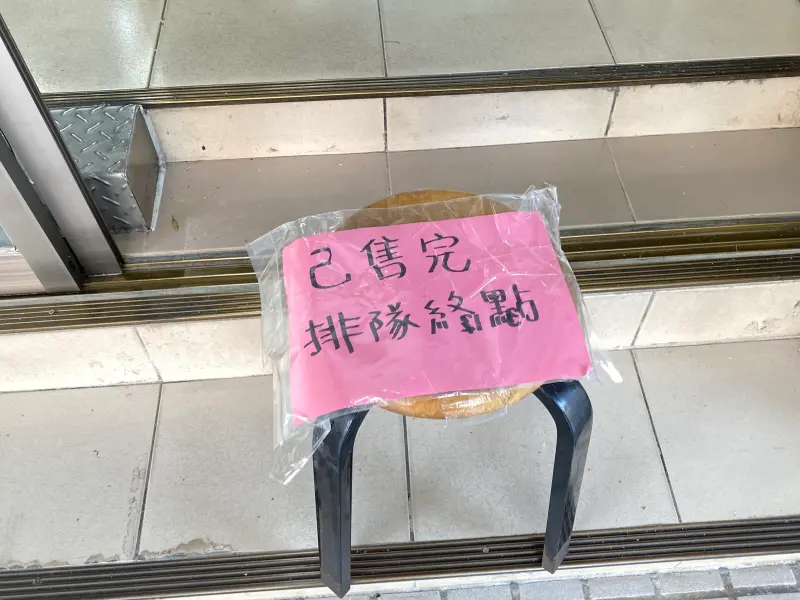 已售完
排隊終點